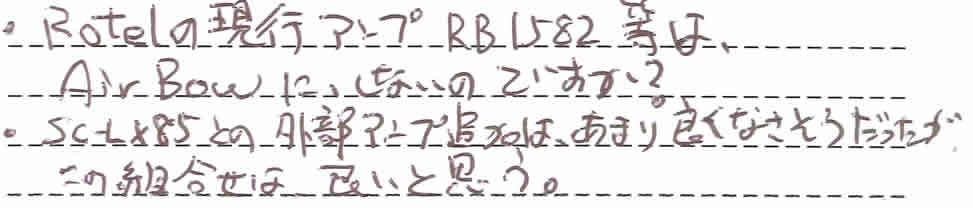 ・Rotelの現行アンプ RB1582 等は、
AirBowに、しないのですか?
・SC-LX85との外部アンプ追加は、あまり良くなさそうだったが、
この組合せは良いと思う。